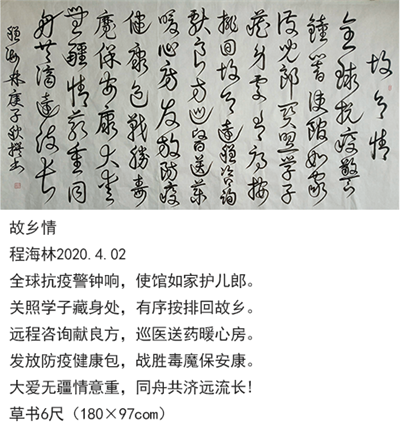 故乡情
全球抗疫警
鐘響使館如家
護兒郎关照学子
藏身處有序按
排回故乡遠程咨詢
献良方巡醫送藥
暖心房发放防疫
健康包戰勝毒
魔保安康大爱
無疆情意重同
舟共濟遠流长
程海林庚子秋撰书
故乡情
程海林2020.4.02
全球抗疫警钟响，使馆如家护儿郎。
关照学子藏身处，有序按排回故乡。
远程咨询献良方，巡医送药暖心房。
发放防疫健康包，战胜毒魔保安康。
大爱无疆情意重，同舟共济远流长!
草书6尺（180×97com）